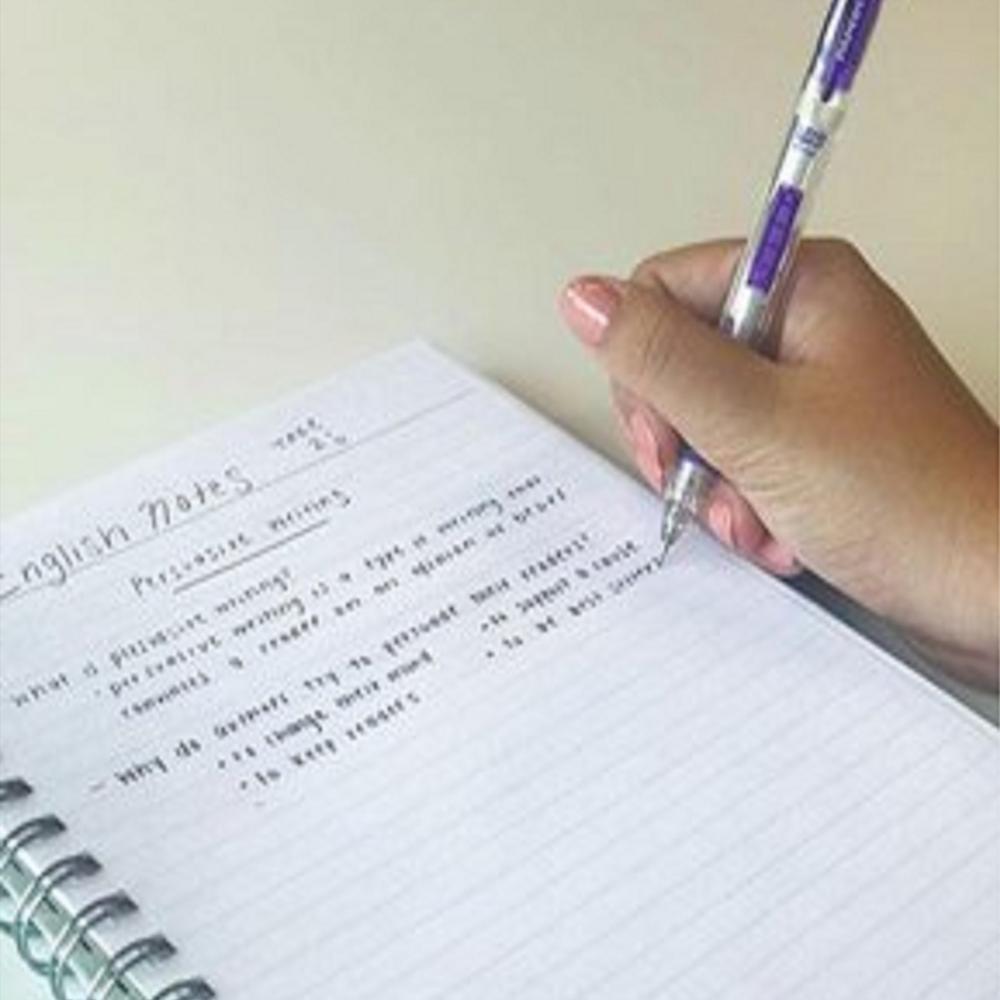 English Notes
Persuasive Writing
What is persuasive writing?
• persuasive writing is a type of writing that
convinces a reader on an opinion or belief
- Why do authors try to persuade their readers?
• to change their mind
• to keep readers
• to support a cause
• to be best